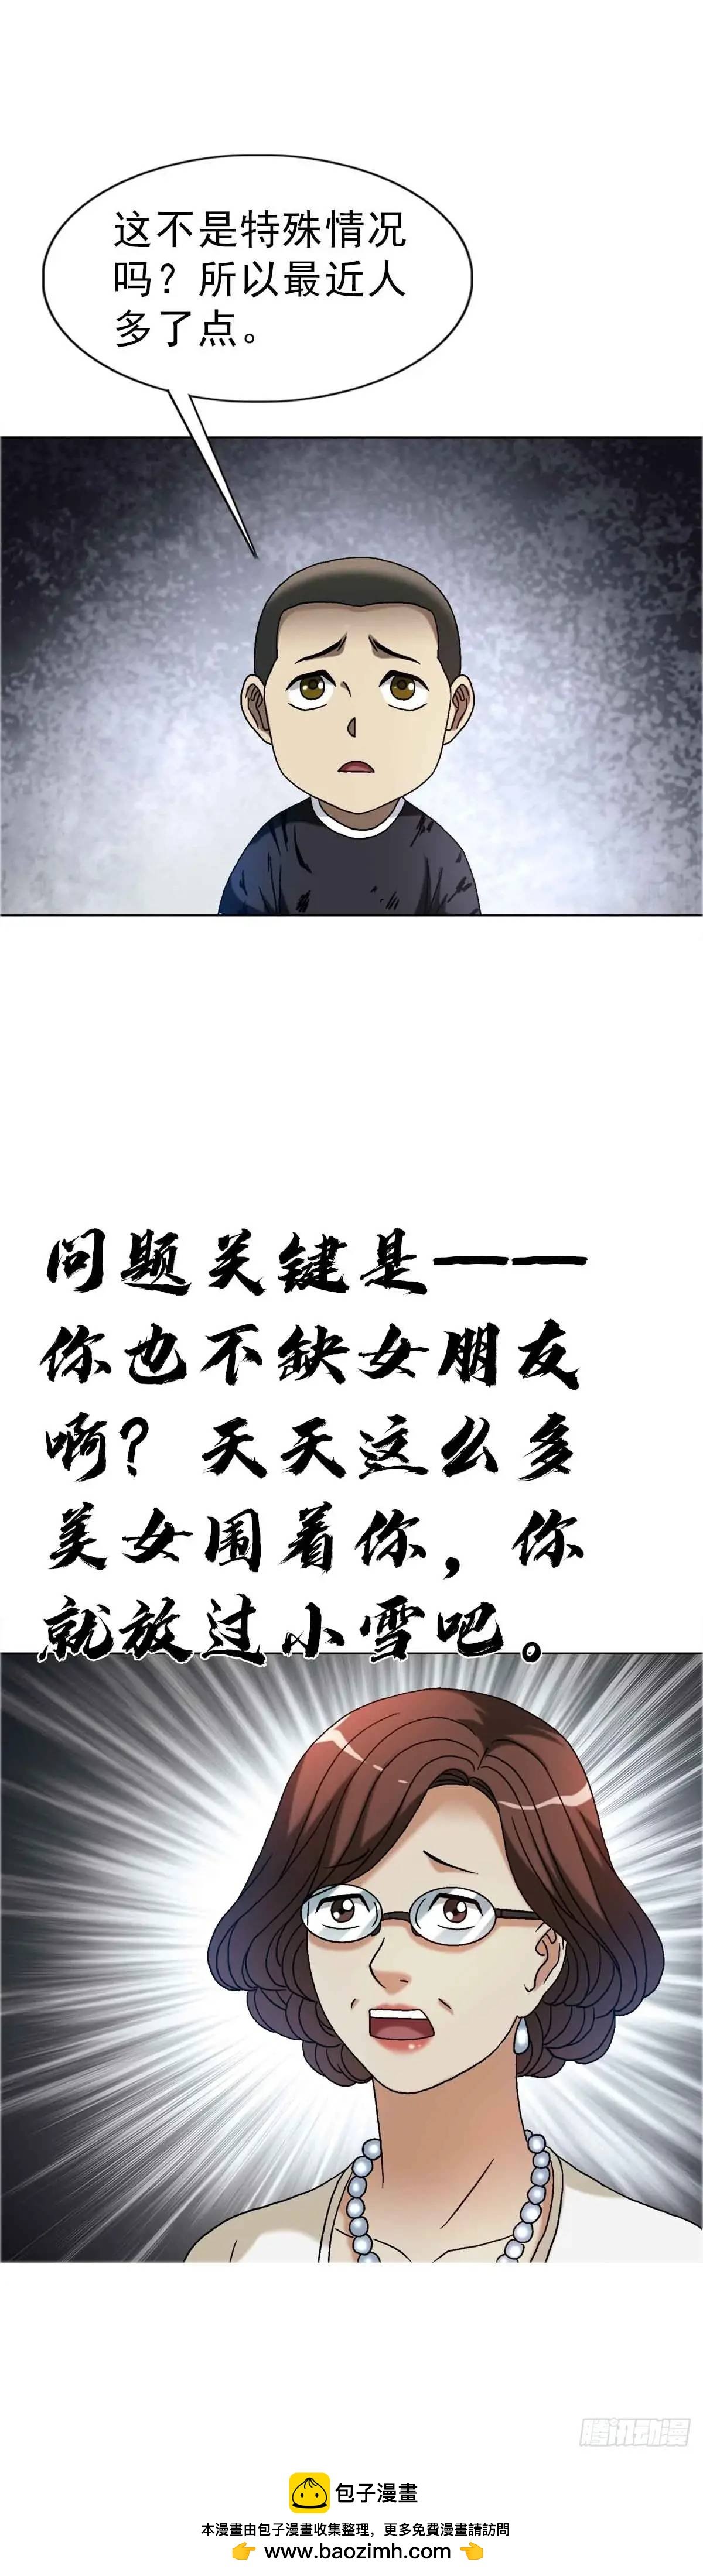 这不是特殊情况
吗？所以最近人
多了点。
问题关键是——
你也不缺女朋友
啊？天天这么多
美女围着你，你
就放过小雪吧。
腾讯动漫
包子漫畫
本漫畫由包子漫畫收集整理，更多免費漫畫請訪問
👉 www.baozimh.com 👈